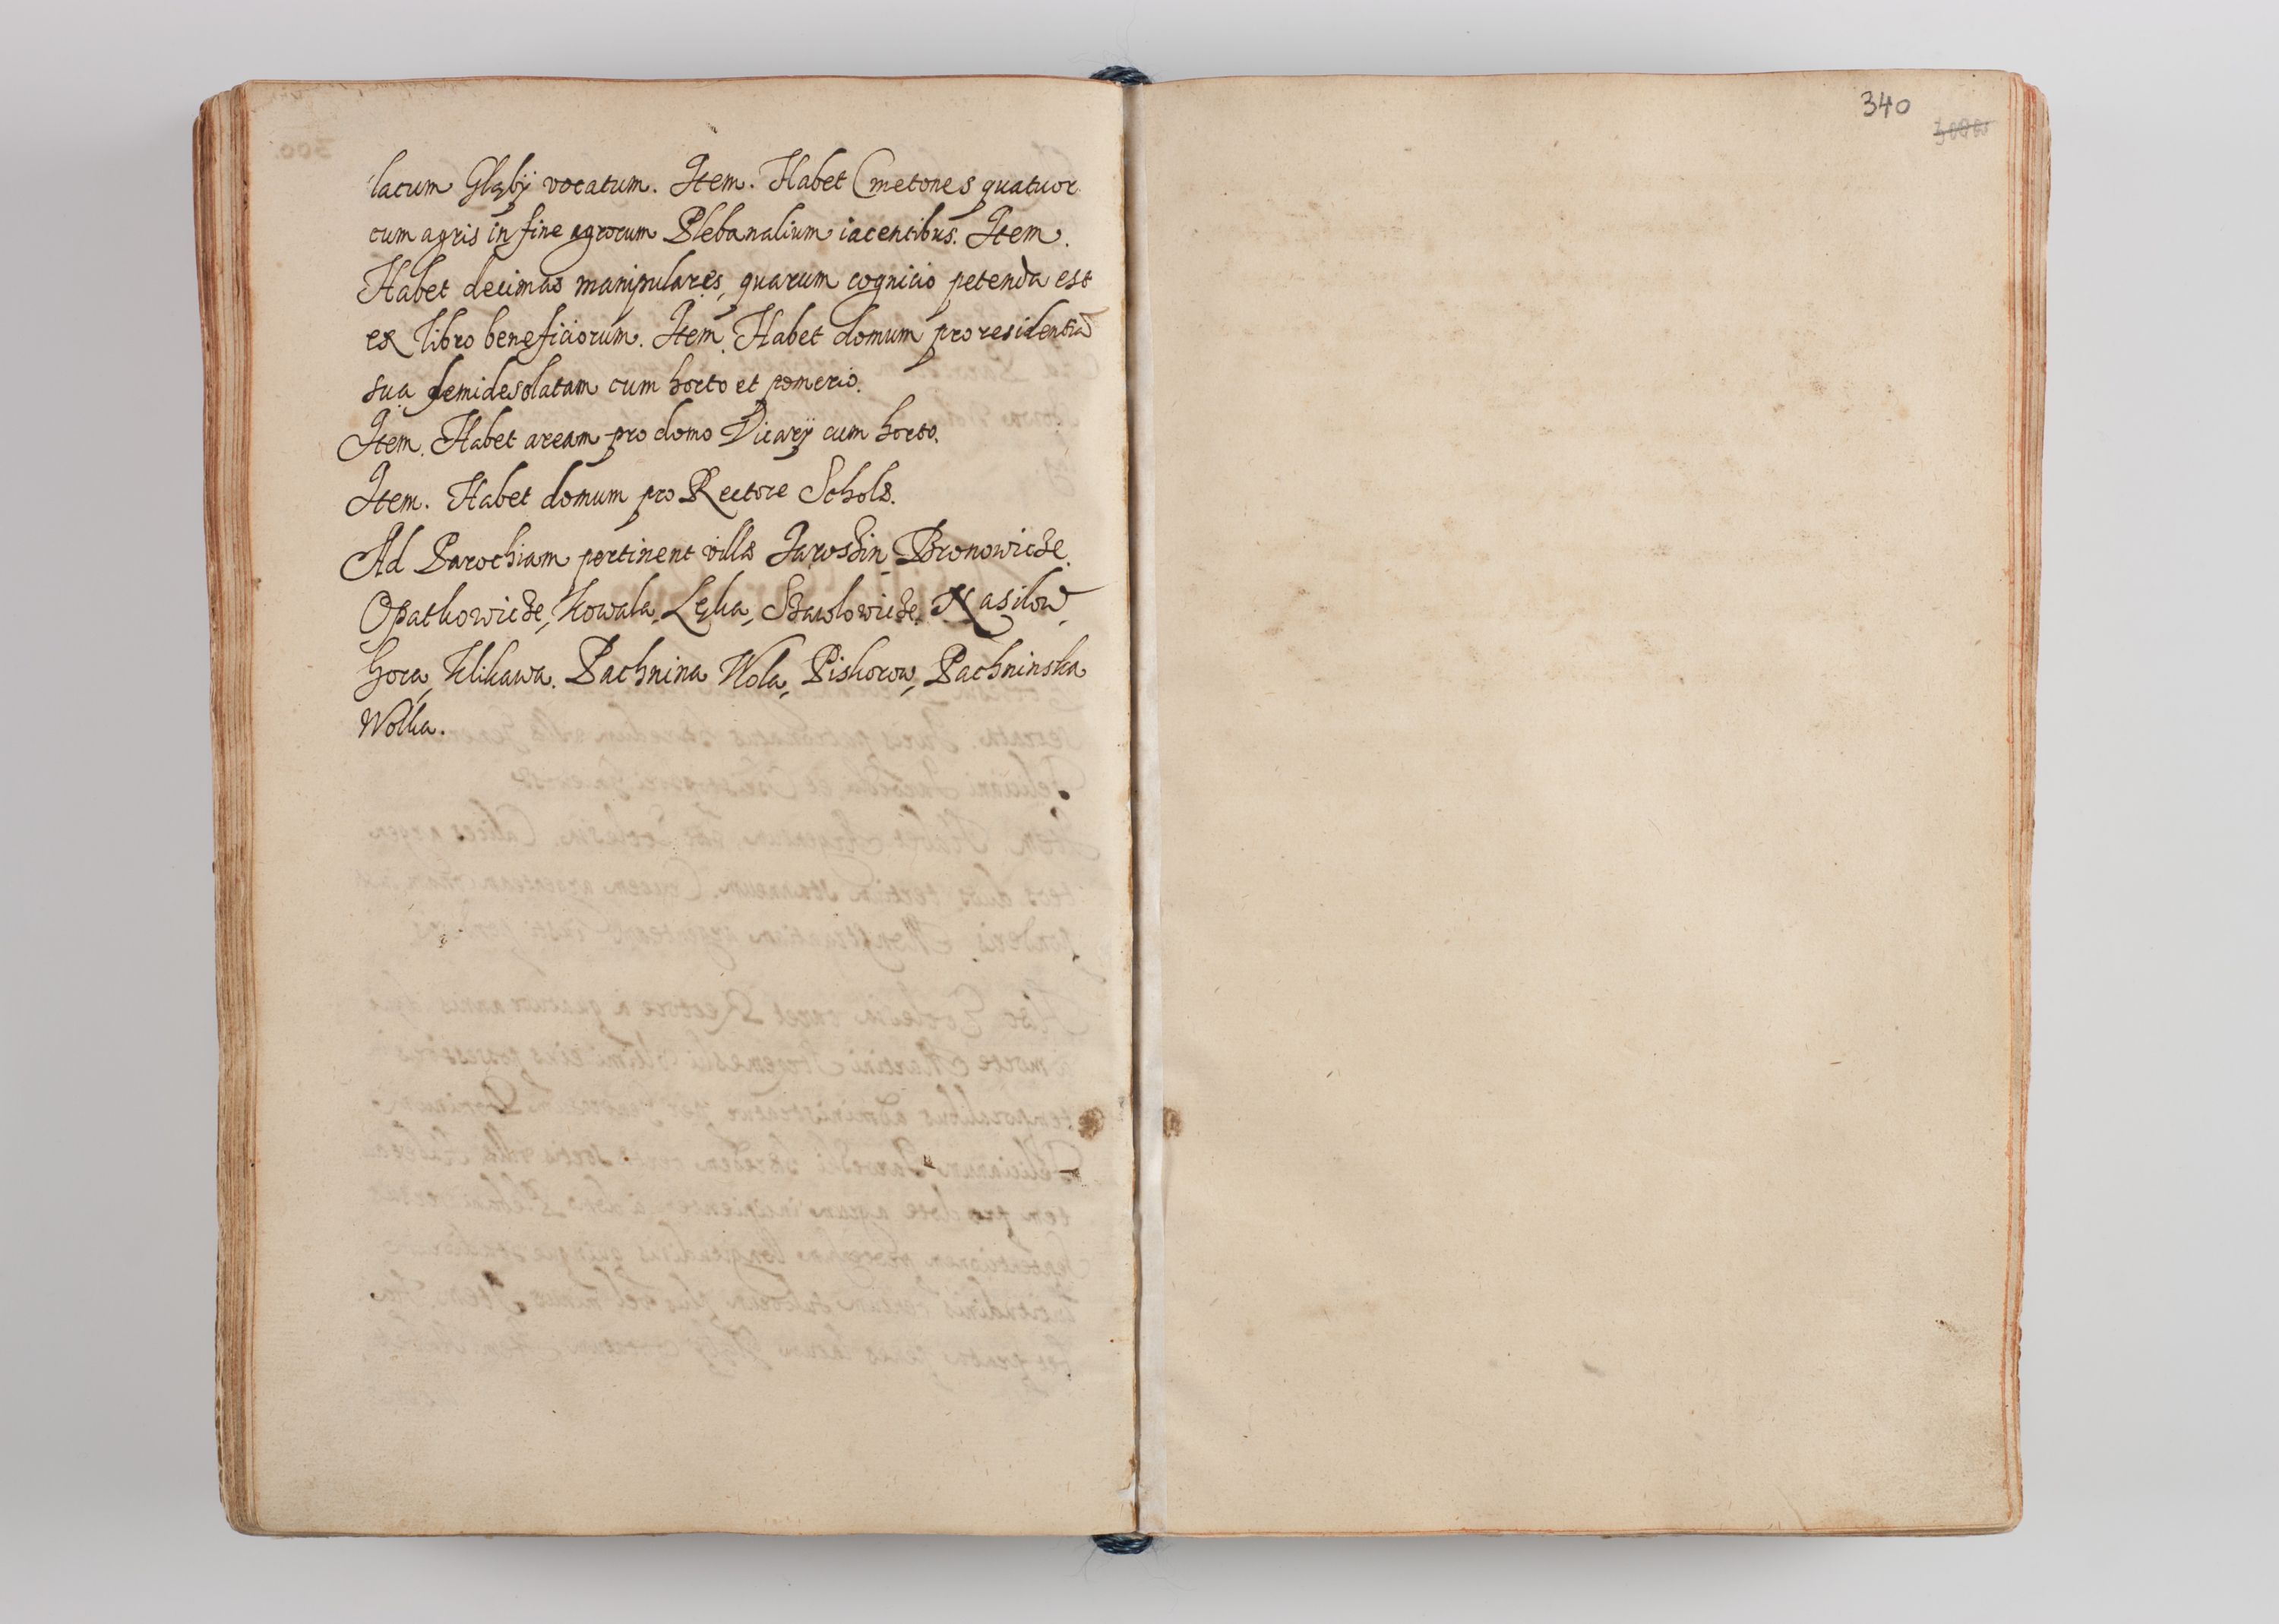 lacum Głębij vocatum. Item. Habet Cmetones quatuor
cum agris in fine agrorum Plebanalium iacentibus. Item.
Habet decimas manipulares, quarum cognicio petenda est
ex libro beneficiorum. Item. Habet domum pro residentia
sua semidesolatam cum horto et pomerio.
Item. Habet aream pro domo Vicarij cum horto.
Item. Habet domum pro Rectore Scholæ.
Ad Parochiam pertinent villæ Jaroszin, Bronowicze,
Opatkowicze, Kowala, Łęka, Szawłowicze, Nasiłow,
Gora, Klikawa, Pachnina Wola, Piskorow, Pachninska
Wolka.
340